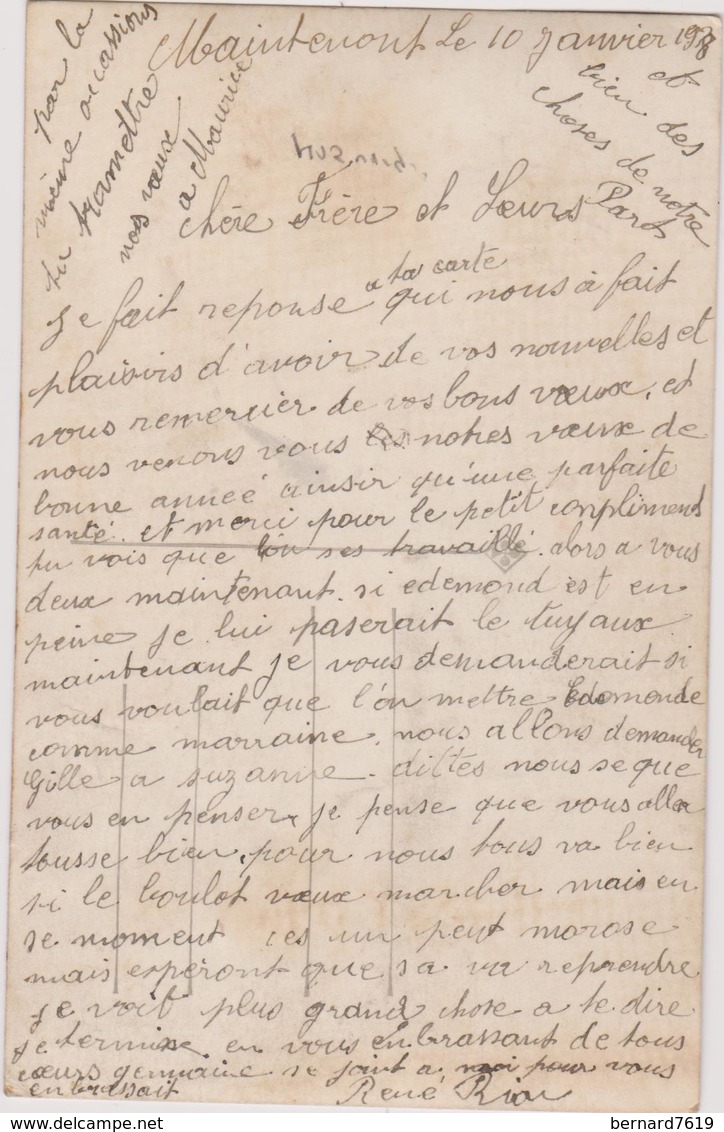 Maintenont Le 10 Janvier
par la
même occassions
tu tramettre
nos vœux
a Maurice
et
bien des
choses de notre
Part
chère Frère et Sœurs
Je fait reponse a ta carte qui nous à fait
plaisirs d'avoir de vos nouvelles et
vous remercier de vos bons vœux. et
nous venons vous les notres vœux de
bonne anneé ainsir qu'une parfaite
santé. et merci pour le petit compliment
tu vois que l'on ses travaillé. alors a vous
deux maintenant. si edemond est en
peine je lui paserait le tuyaux
maintenant je vous demanderait si
vous voulait que l'on mettre Edemonde
comme marraine. nous allons demander
Gille a suzanne. dittes nous se que
vous en penser. je pense que vous aller
tousse bien, pour nous tous va bien
si le boulot vœux marcher mais en
se moment ces un peut morose
mais espéront que sa va reprendre
je voit plus grand chose a te dire
je termine en vous enbrassant de tous
cœurs germaine se joint a moi pour vous
enbrassait
René
bernard7619